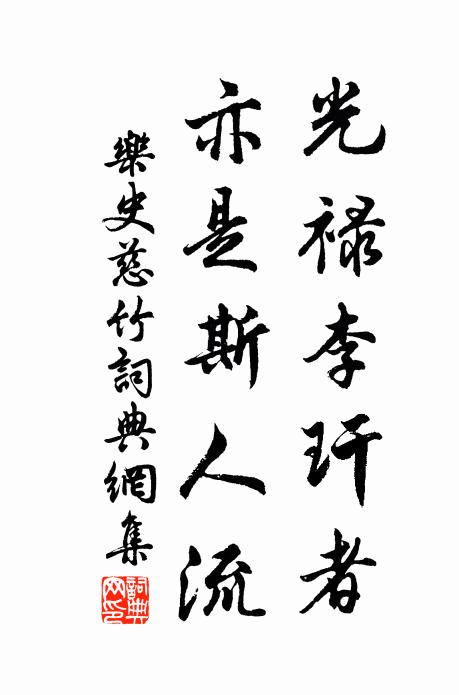 光禄李玕者
亦是斯人流
樂史慈竹詞典網集
詞典网印